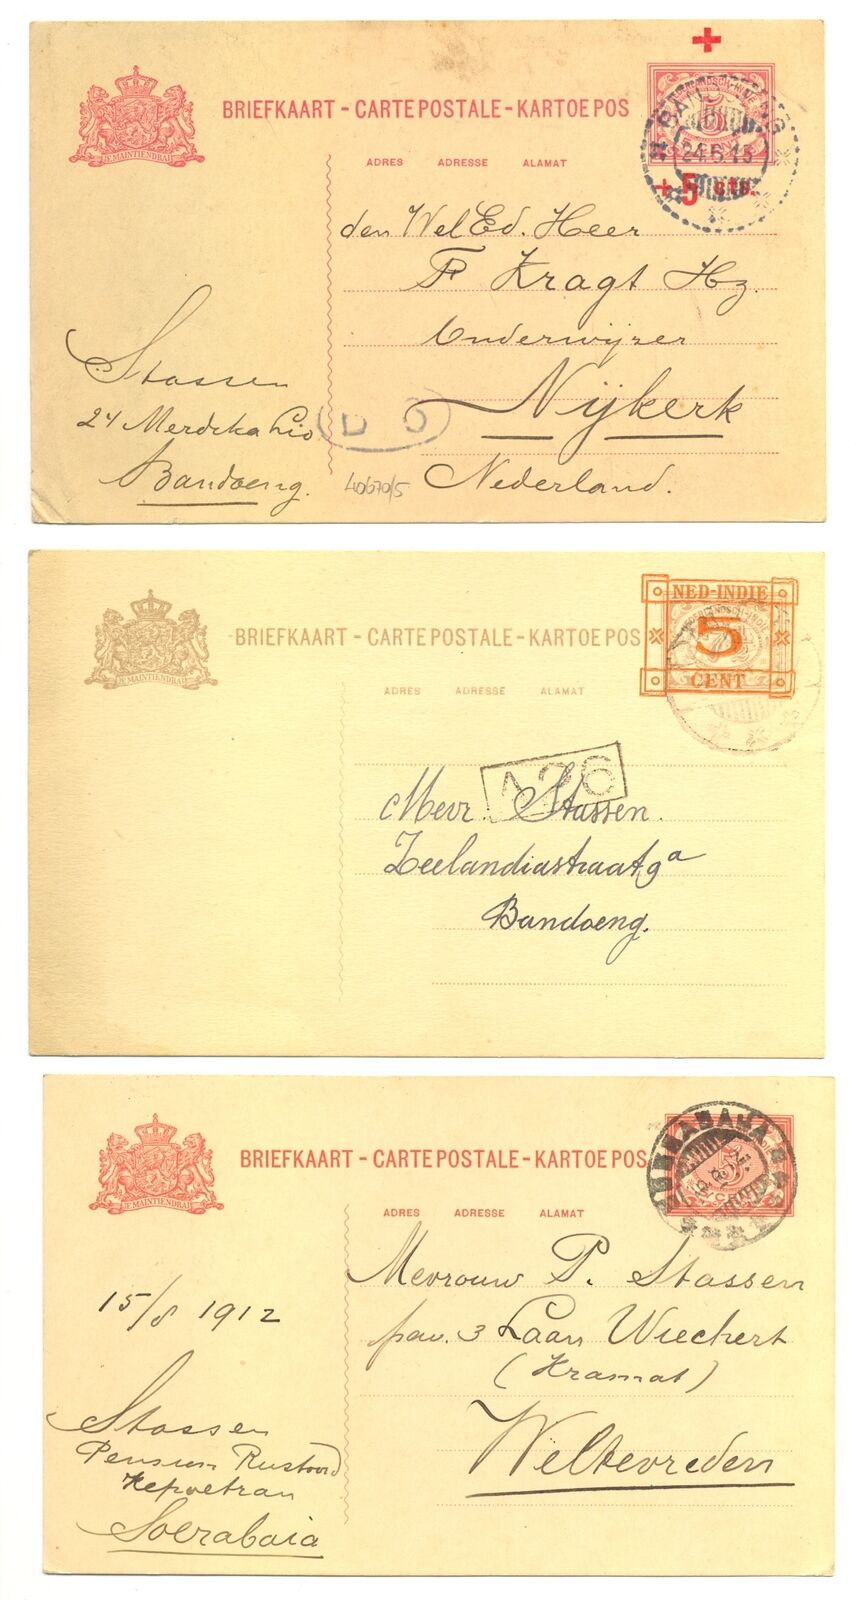 JE MAINTIENDRAI
BRIEFKAART - CARTE POSTALE - KARTOE POS
ADRES ADRESSE ALAMAT
5
24.6.15
+5 cts.
den Wel Ed. Heer
F Kragt Hz.
Onderwijzer
Nijkerk
Nederland.
Stassen
24 Merdika Lio
Bandoeng.
40670/5
JE MAINTIENDRAI
BRIEFKAART - CARTE POSTALE - KARTOE POS
NED-INDIE
5
CENT
ADRES ADRESSE ALAMAT
Mevr. Stassen.
Zeelandiastraat 9a
Bandoeng.
JE MAINTIENDRAI
BRIEFKAART - CARTE POSTALE - KARTOE POS
5
SOERABAJA
ADRES ADRESSE ALAMAT
Mevrouw P. Stassen
pav. 3 Laan Wiechert
(Kramat)
Weltevreden
15/8 1912
Stassen
Pension Rustoord
Kepoetran
Soerabaia